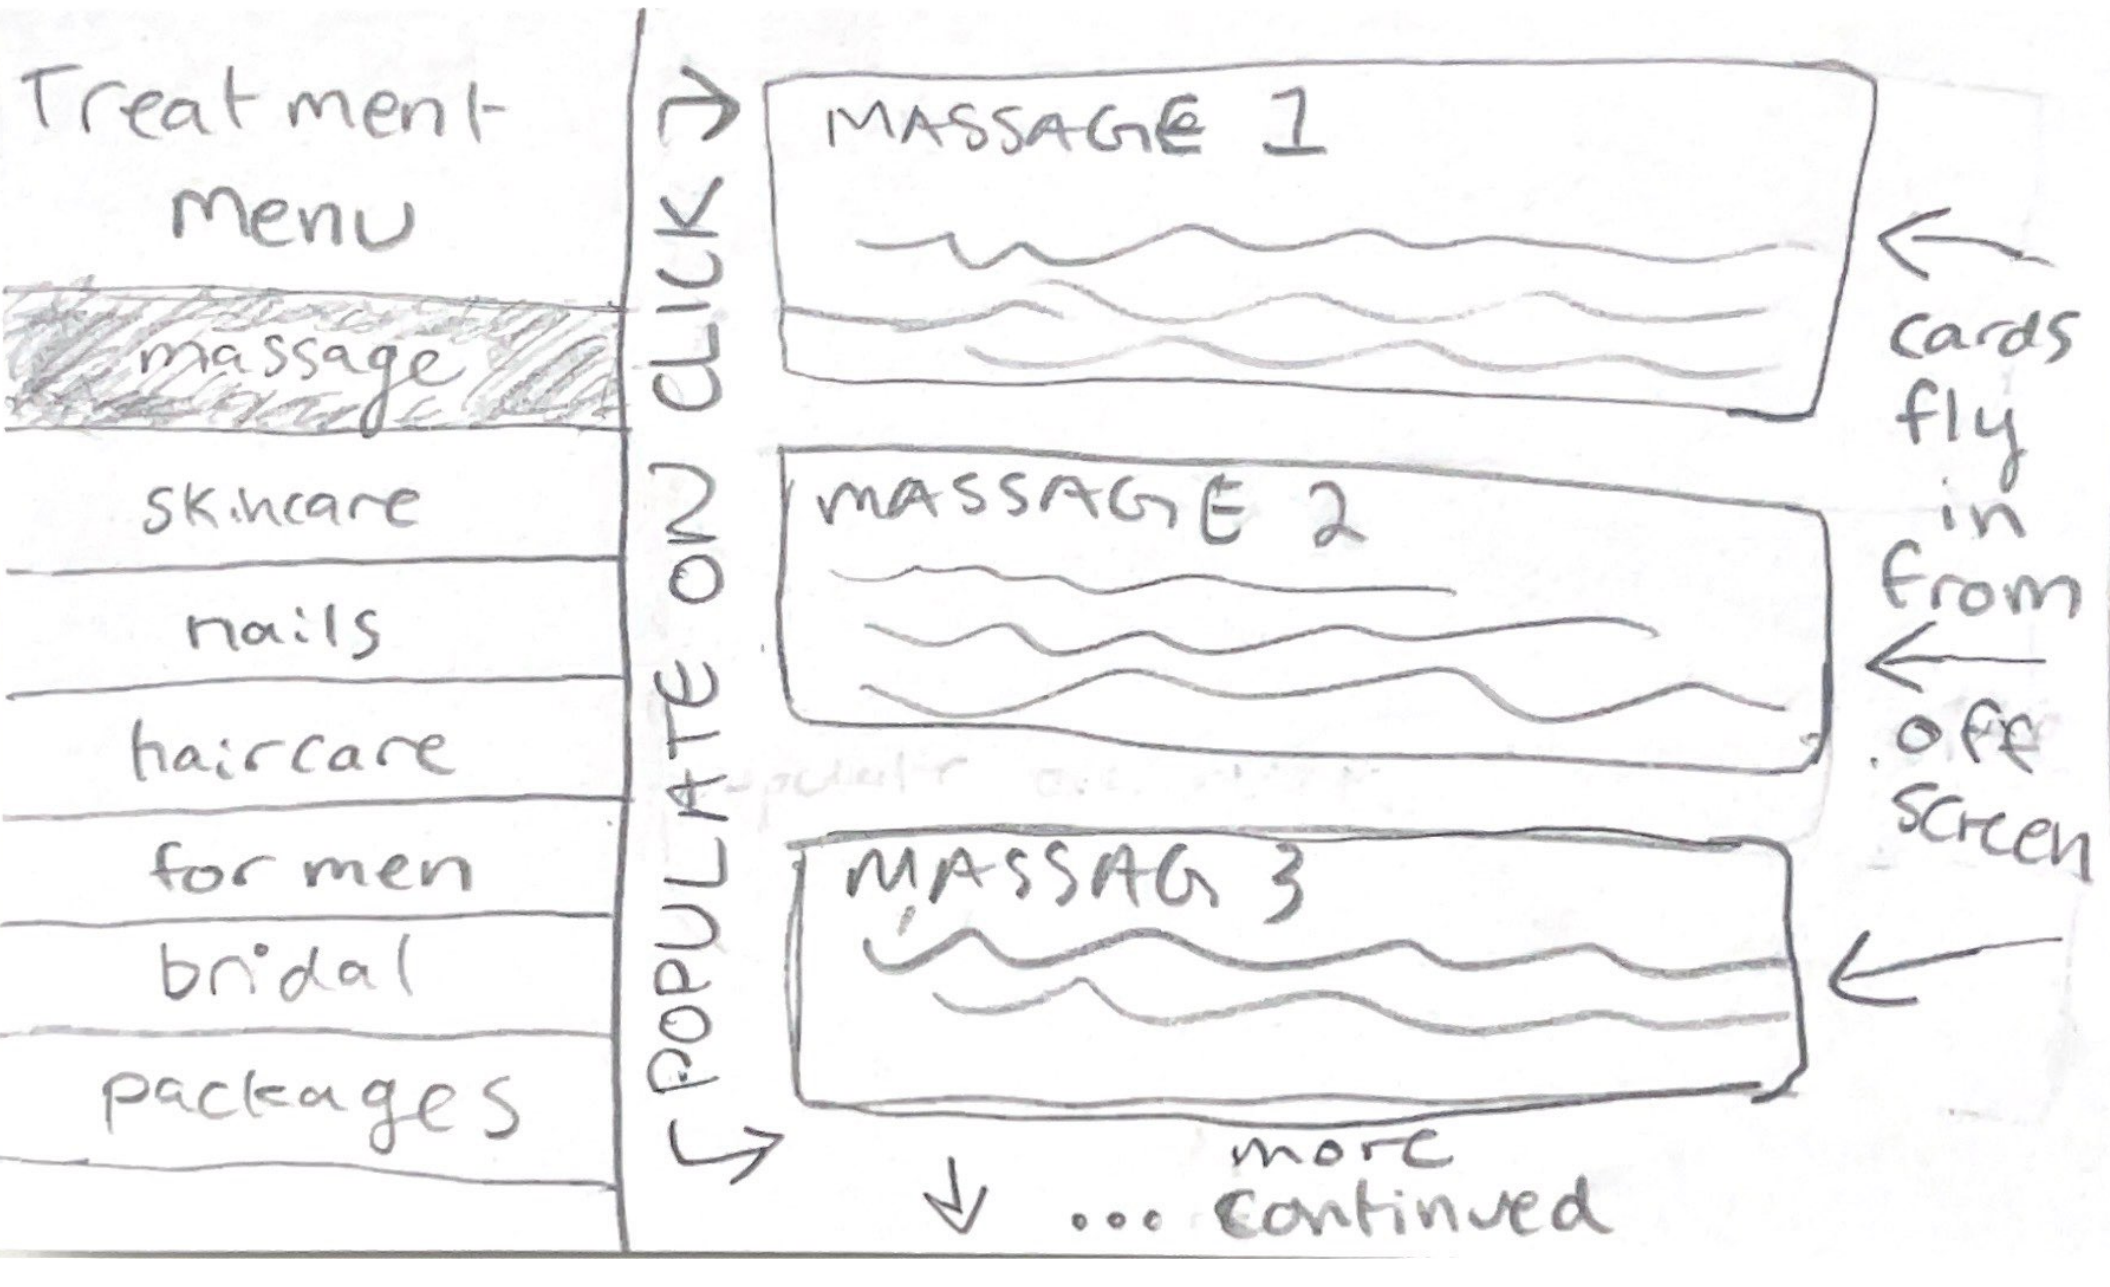 Treatment
menu
massage
skincare
nails
haircare
for men
bridal
packages
POPULATE ON CLICK
MASSAGE 1
MASSAGE 2
MASSAG 3
more
... continued
cards
fly
in
from
off
screen